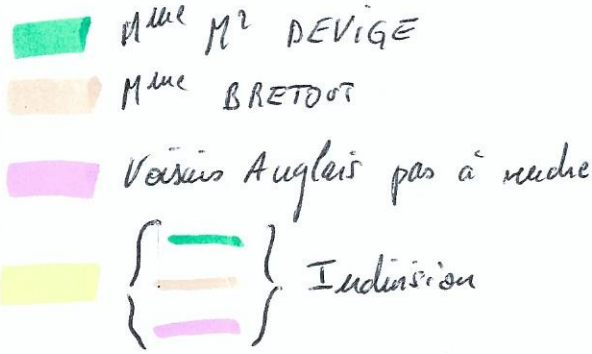 Mme Mr DEVIGE
Mme BRETOUT
Voisins Anglais pas à vendre
Indivision